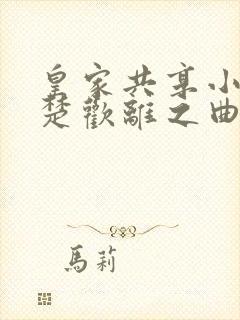 皇家共享小
楚歡離之曲
馬莉